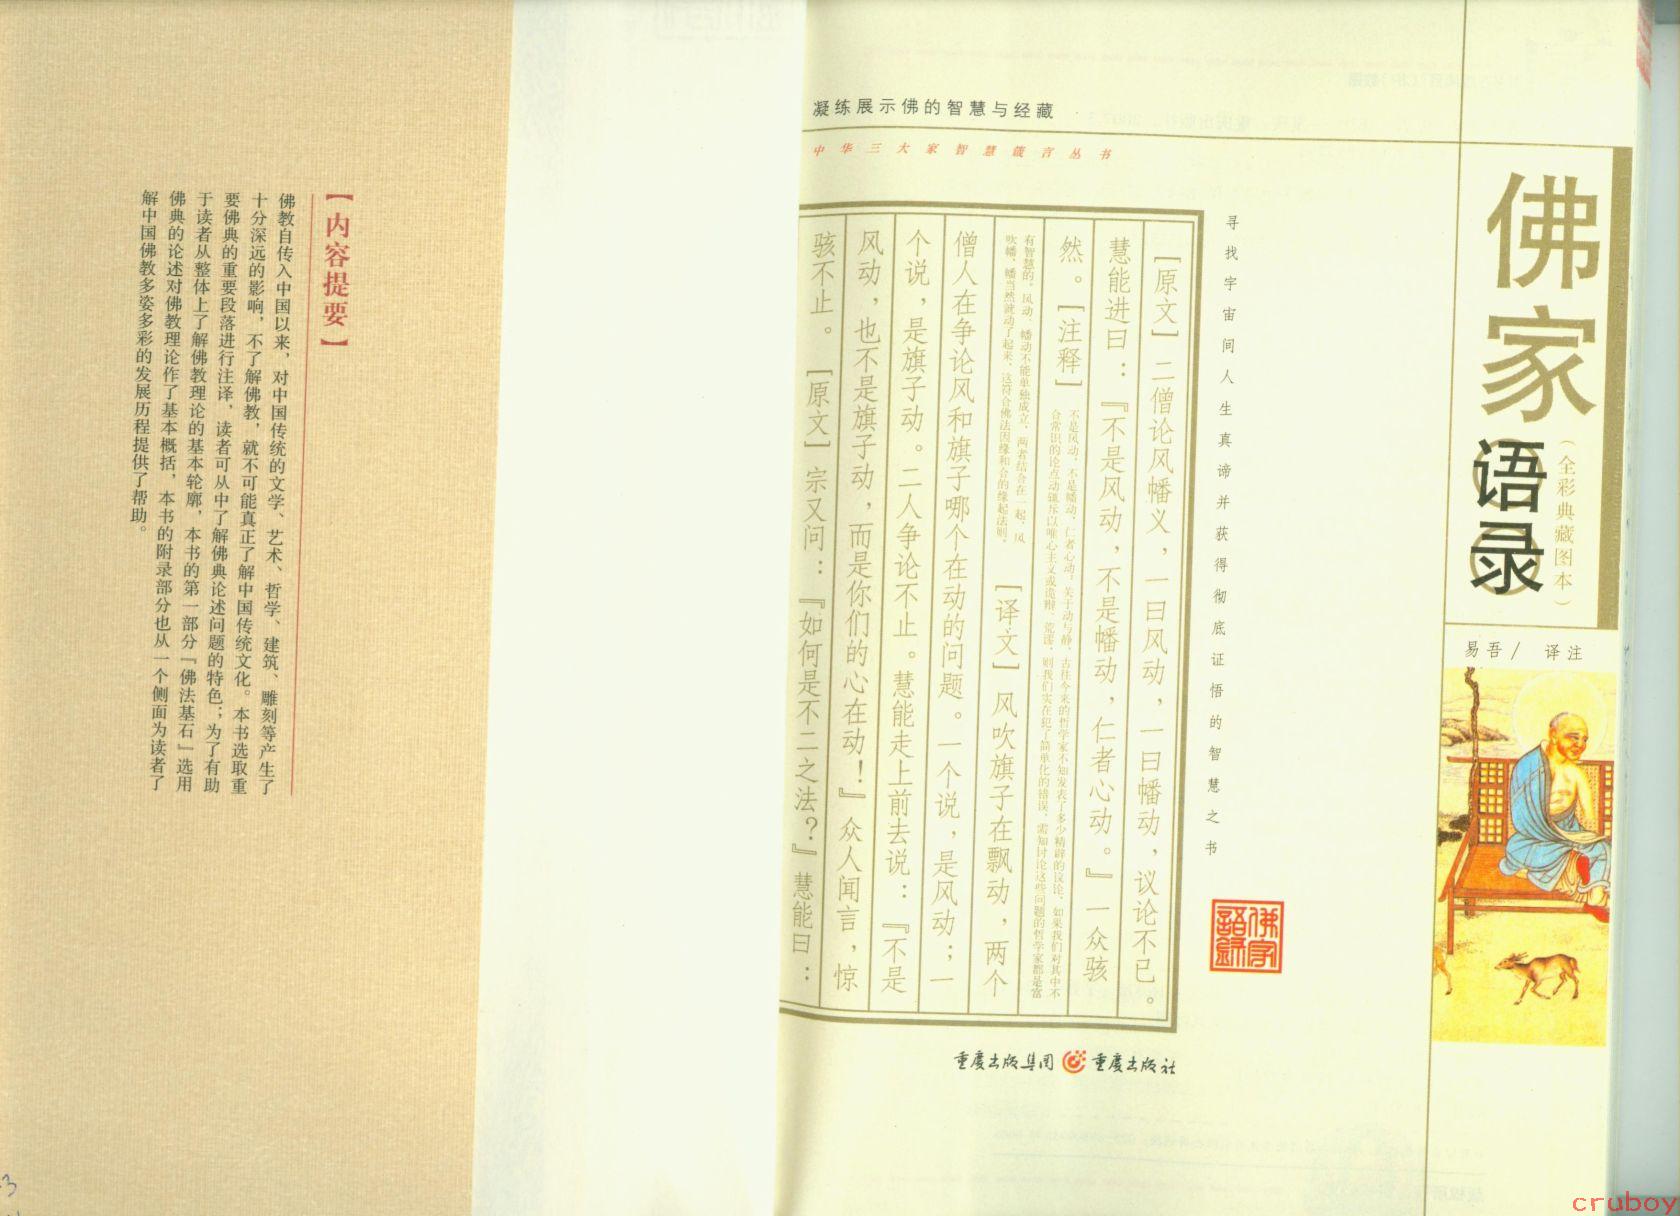 【内容提要】
佛教自传入中国以来，对中国传统的文学、艺术、哲学、建筑、雕刻等产生了
十分深远的影响，不了解佛教，就不可能真正了解中国传统文化。本书选取重
要佛典的重要段落进行注译，读者可从中了解佛典论述问题的特色；为了有助
于读者从整体上了解佛教理论的基本轮廓，本书的第一部分『佛法基石』选用
佛典的论述对佛教理论作了基本概括，本书的附录部分也从一个侧面为读者了
解中国佛教多姿多彩的发展历程提供了帮助。
凝练展示佛的智慧与经藏
中华三大家智慧箴言丛书
佛家
语录
（全彩典藏图本）
易吾/ 译注
寻找宇宙间人生真谛并获得彻底证悟的智慧之书
佛家
語録
［原文］二僧论风幡义，一曰风动，一曰幡动，议论不已。
慧能进曰：『不是风动，不是幡动，仁者心动。』一众骇
然。［注释］
不是风动，不是幡动，仁者心动：关于动与静，古往今来的哲学家不知发表了多少精辟的议论，如果我们对其中不
合常识的论点动辄斥以唯心主义或诡辩、荒谬，则我们实在犯了简单化的错误，需知讨论这些问题的哲学家都是富
有智慧的。风动、幡动不能单独成立，两者结合在一起，风
吹幡，幡当然就动了起来，这符合佛法因缘和合的缘起法则。
［译文］风吹旗子在飘动，两个
僧人在争论风和旗子哪个在动的问题。一个说，是风动；一
个说，是旗子动。二人争论不止。慧能走上前去说：『不是
风动，也不是旗子动，而是你们的心在动！』众人闻言，惊
骇不止。［原文］宗又问：『如何是不二之法？』慧能曰：
重庆出版集团 重庆出版社
cruboy